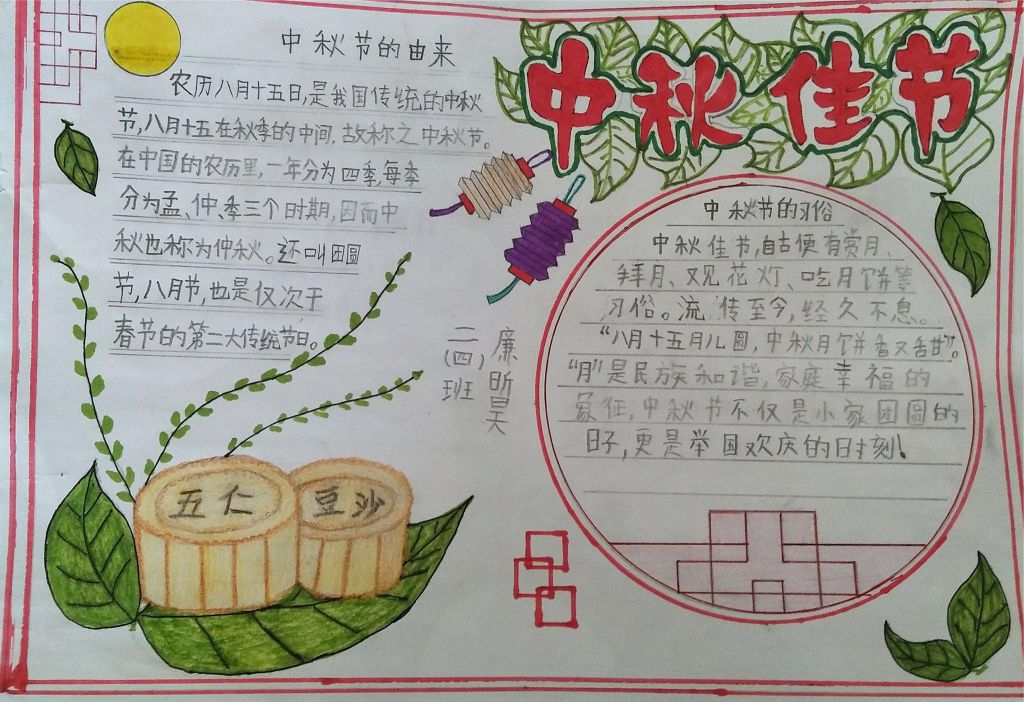 中秋佳节
中秋节的由来
农历八月十五日,是我国传统的中秋
节,八月十五在秋季的中间,故称之中秋节。
在中国的农历里,一年分为四季,每季
分为孟、仲、季三个时期,因而中
秋也称为仲秋。还叫团圆
节,八月节,也是仅次于
春节的第二大传统节日。
二(四)班
廉昕昊
五仁
豆沙
中秋节的习俗
中秋佳节,自古便有赏月、
拜月、观花灯、吃月饼等
习俗。流传至今,经久不息。
“八月十五月儿圆,中秋月饼香又甜”。
“月”是民族和谐,家庭幸福的
象征,中秋节不仅是小家团圆的
日子,更是举国欢庆的日时刻!